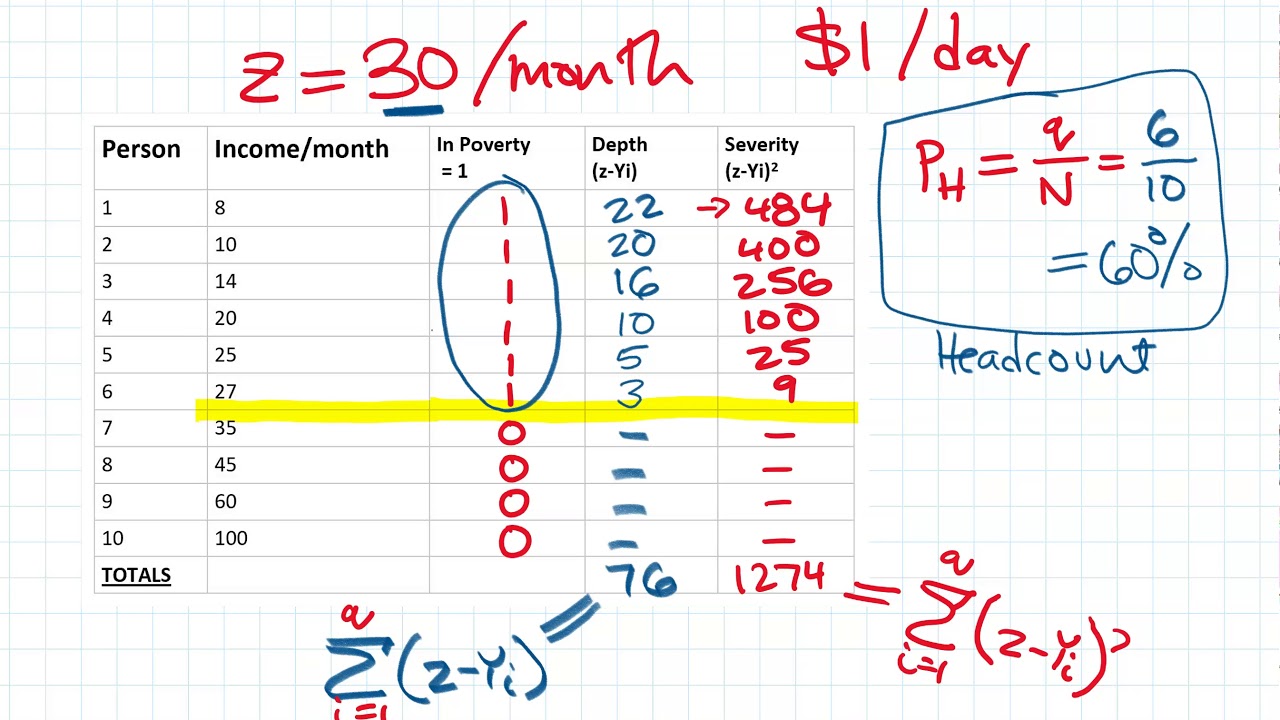 z = 30 /month $1 /day
Person Income/month In Poverty = 1 Depth (z-Yi) Severity (z-Yi)²
1 8 1 22 → 484
2 10 1 20 400
3 14 1 16 256
4 20 1 10 100
5 25 1 5 25
6 27 1 3 9
7 35 0 – –
8 45 0 – –
9 60 0 – –
10 100 0 – –
TOTALS 76 1274
P_H = q/N = 6/10
= 60%
Headcount
q
Σ (z-Yi) =
i=1
= q
Σ (z-Yi)²
i=1